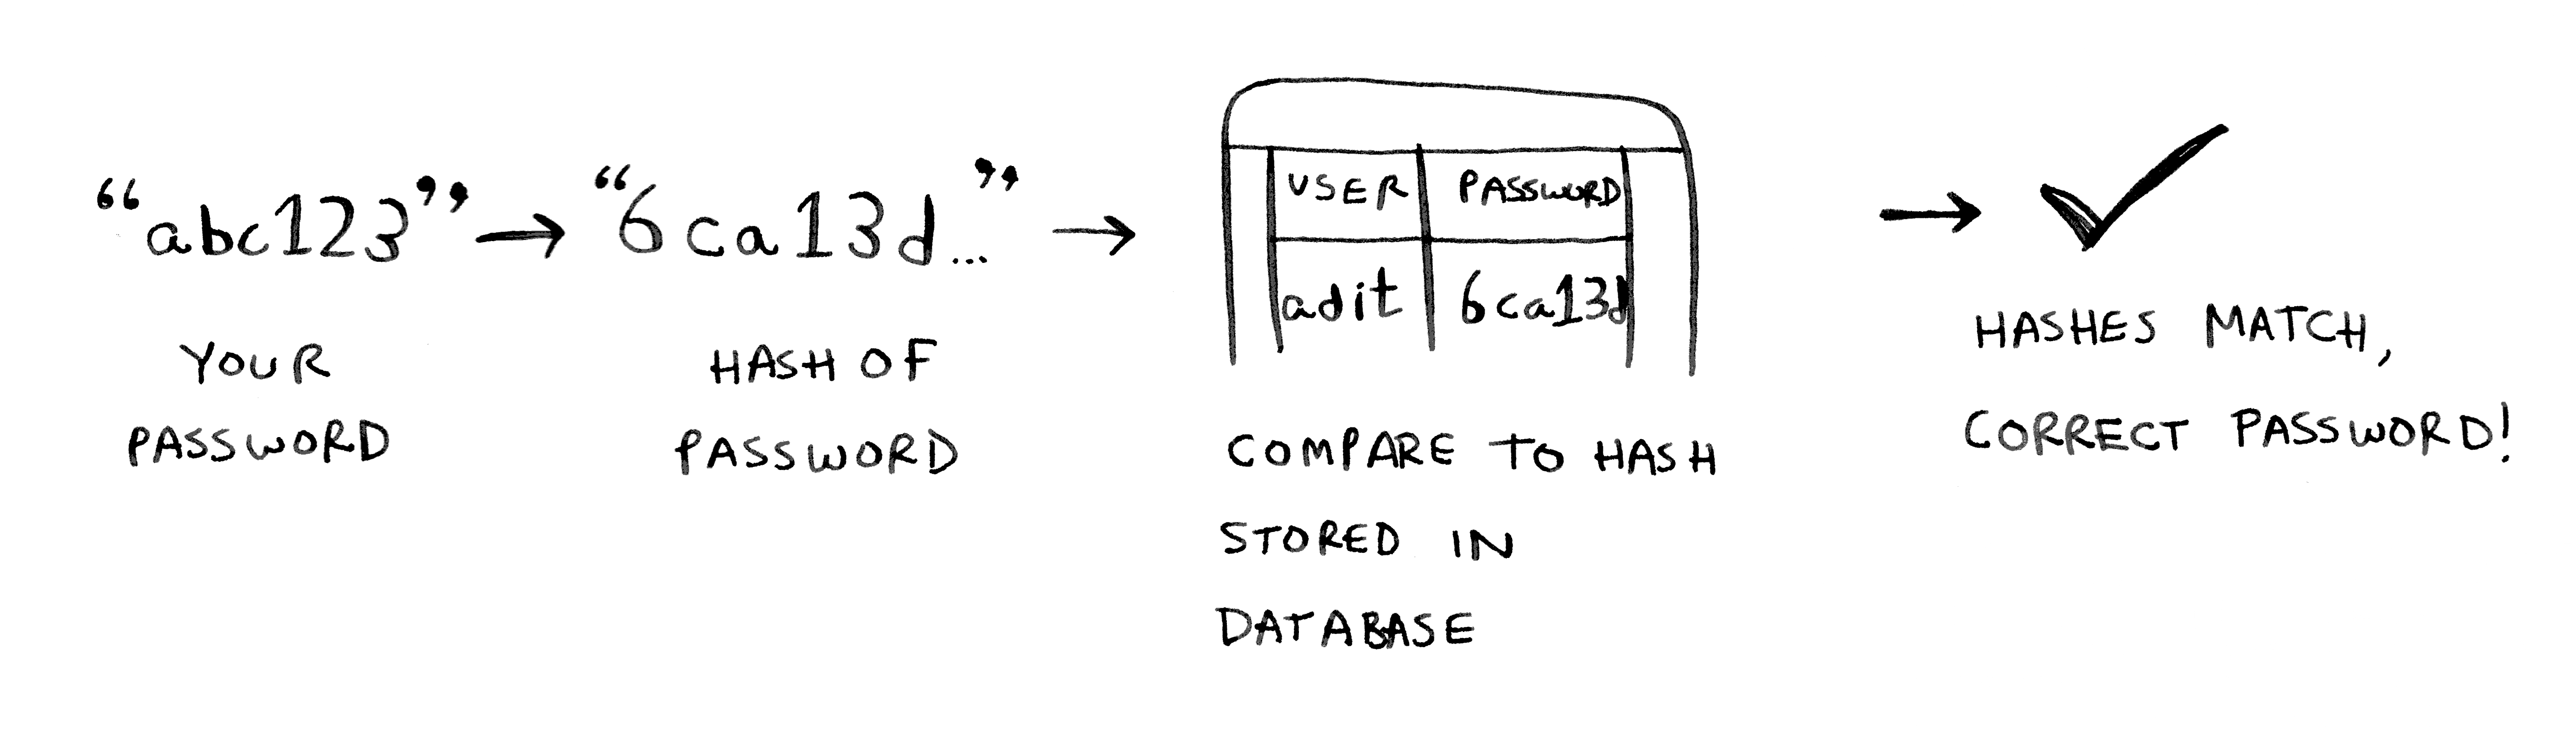 “abc123”
YOUR
PASSWORD
“6ca13d...”
HASH OF
PASSWORD
USER PASSWORD
adit 6ca13d
COMPARE TO HASH
STORED IN
DATABASE
HASHES MATCH,
CORRECT PASSWORD!